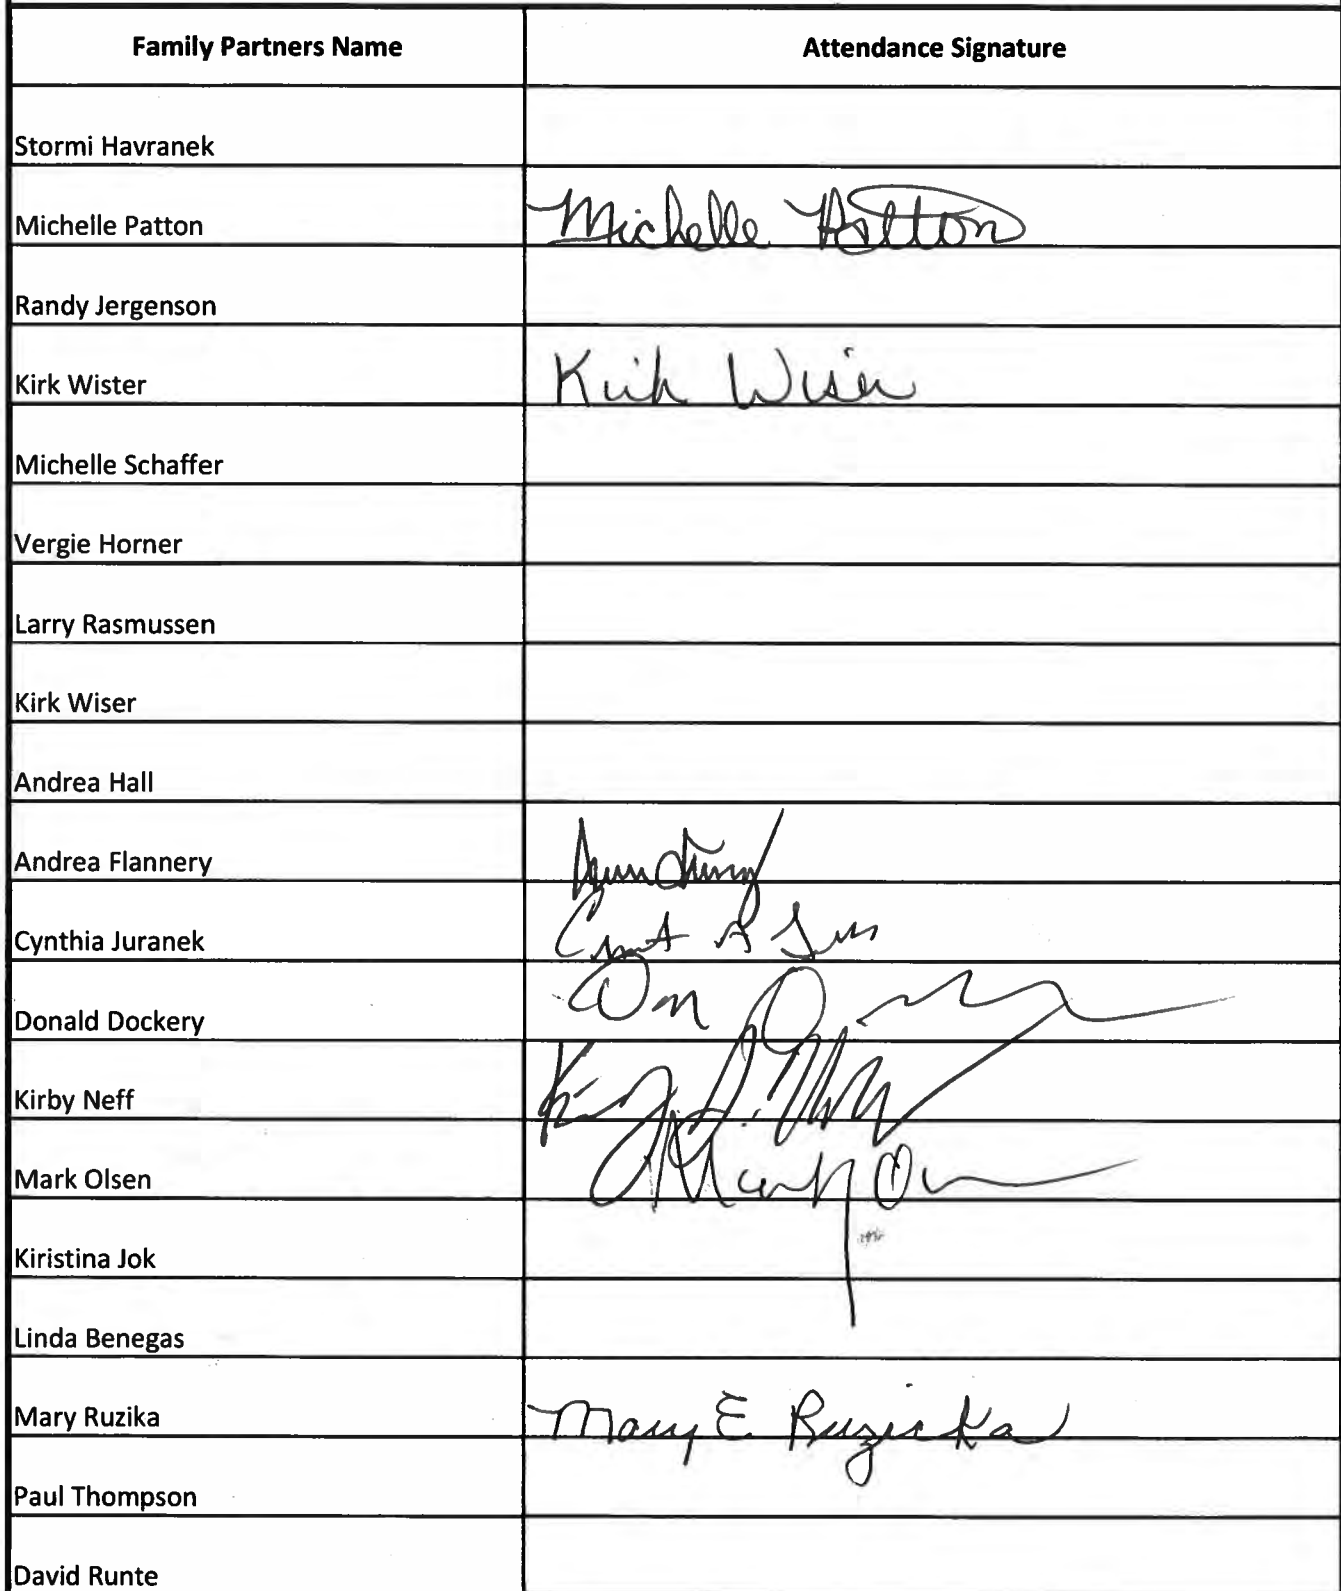 Family Partners Name Attendance Signature
Stormi Havranek
Michelle Patton Michelle Patton
Randy Jergenson
Kirk Wister Kirk Wiser
Michelle Schaffer
Vergie Horner
Larry Rasmussen
Kirk Wiser
Andrea Hall
Andrea Flannery
Cynthia Juranek
Donald Dockery Don
Kirby Neff
Mark Olsen Mark
Kiristina Jok
Linda Benegas
Mary Ruzika Mary E Ruzicka
Paul Thompson
David Runte